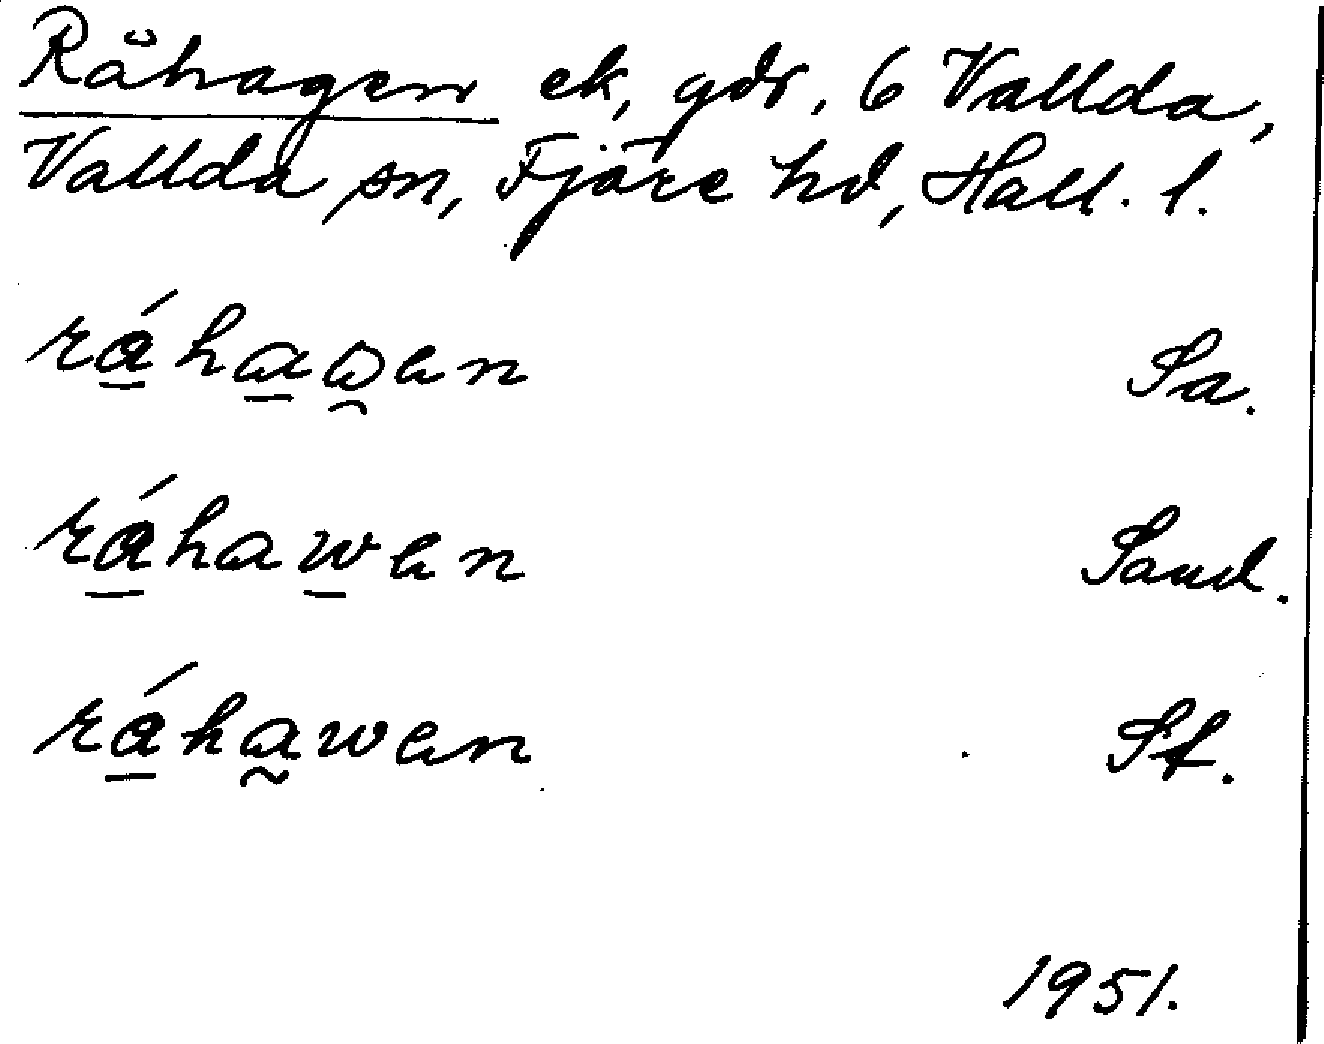 Råhagen ek, gdr, 6 Vallda,
Vallda sn, Fjäre hd, Hall. l.
rá̱ha̱ꞷ̑en Sa.
rá̱haw̱en Sand.
rá̱ha̰wen Sf.
1951.